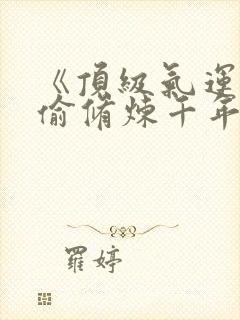 《頂級氣運
偷脩煉千年
羅婷